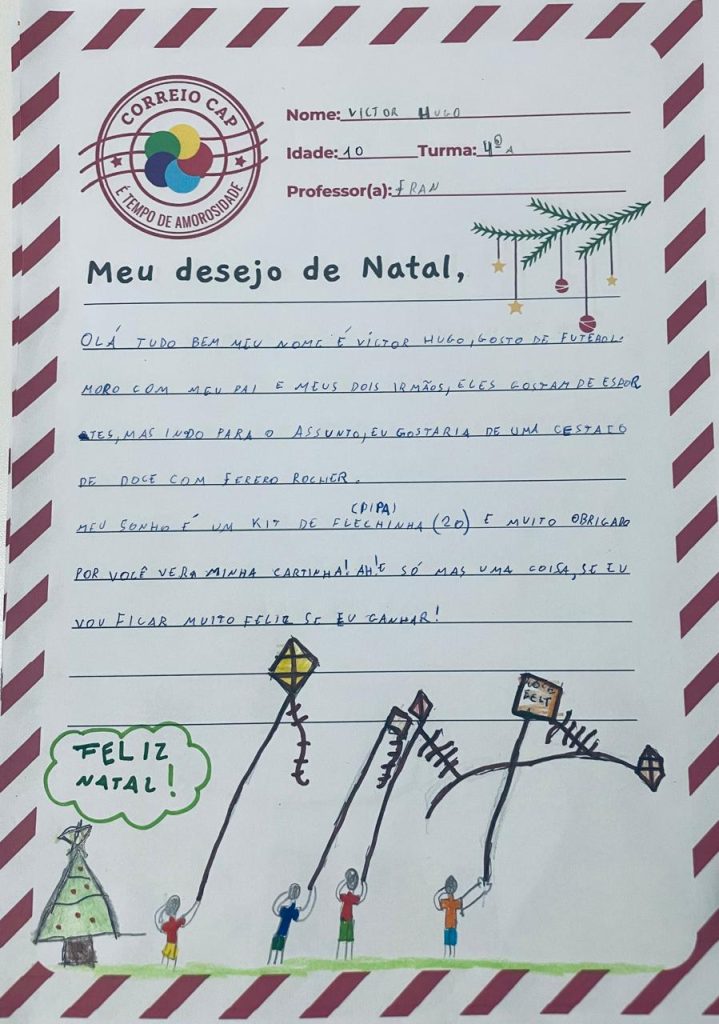 CORREIO CAP
É TEMPO DE AMOROSIDADE
Nome: VICTOR HUGO
Idade: 10 Turma: 4º A
Professor(a): FRAN
Meu desejo de Natal,
OLÁ TUDO BEM MEU NOME É VICTOR HUGO, GOSTO DE FUTEBOL.
MORO COM MEU PAI E MEUS DOIS IRMÃOS, ELES GOSTAM DE ESPOR
TES, MAS INDO PARA O ASSUNTO, EU GOSTARIA DE UMA CESTA
DE DOCE COM FERERO ROCHER.
(PIPA)
MEU SONHO É UM KIT DE FLECHINHA (20) E MUITO OBRIGADO
POR VOCÊ VER A MINHA CARTINHA! AH! E SÓ MAS UMA COISA, SE EU
VOU FICAR MUITO FELIZ SE EU GANHAR!
FELIZ
NATAL!